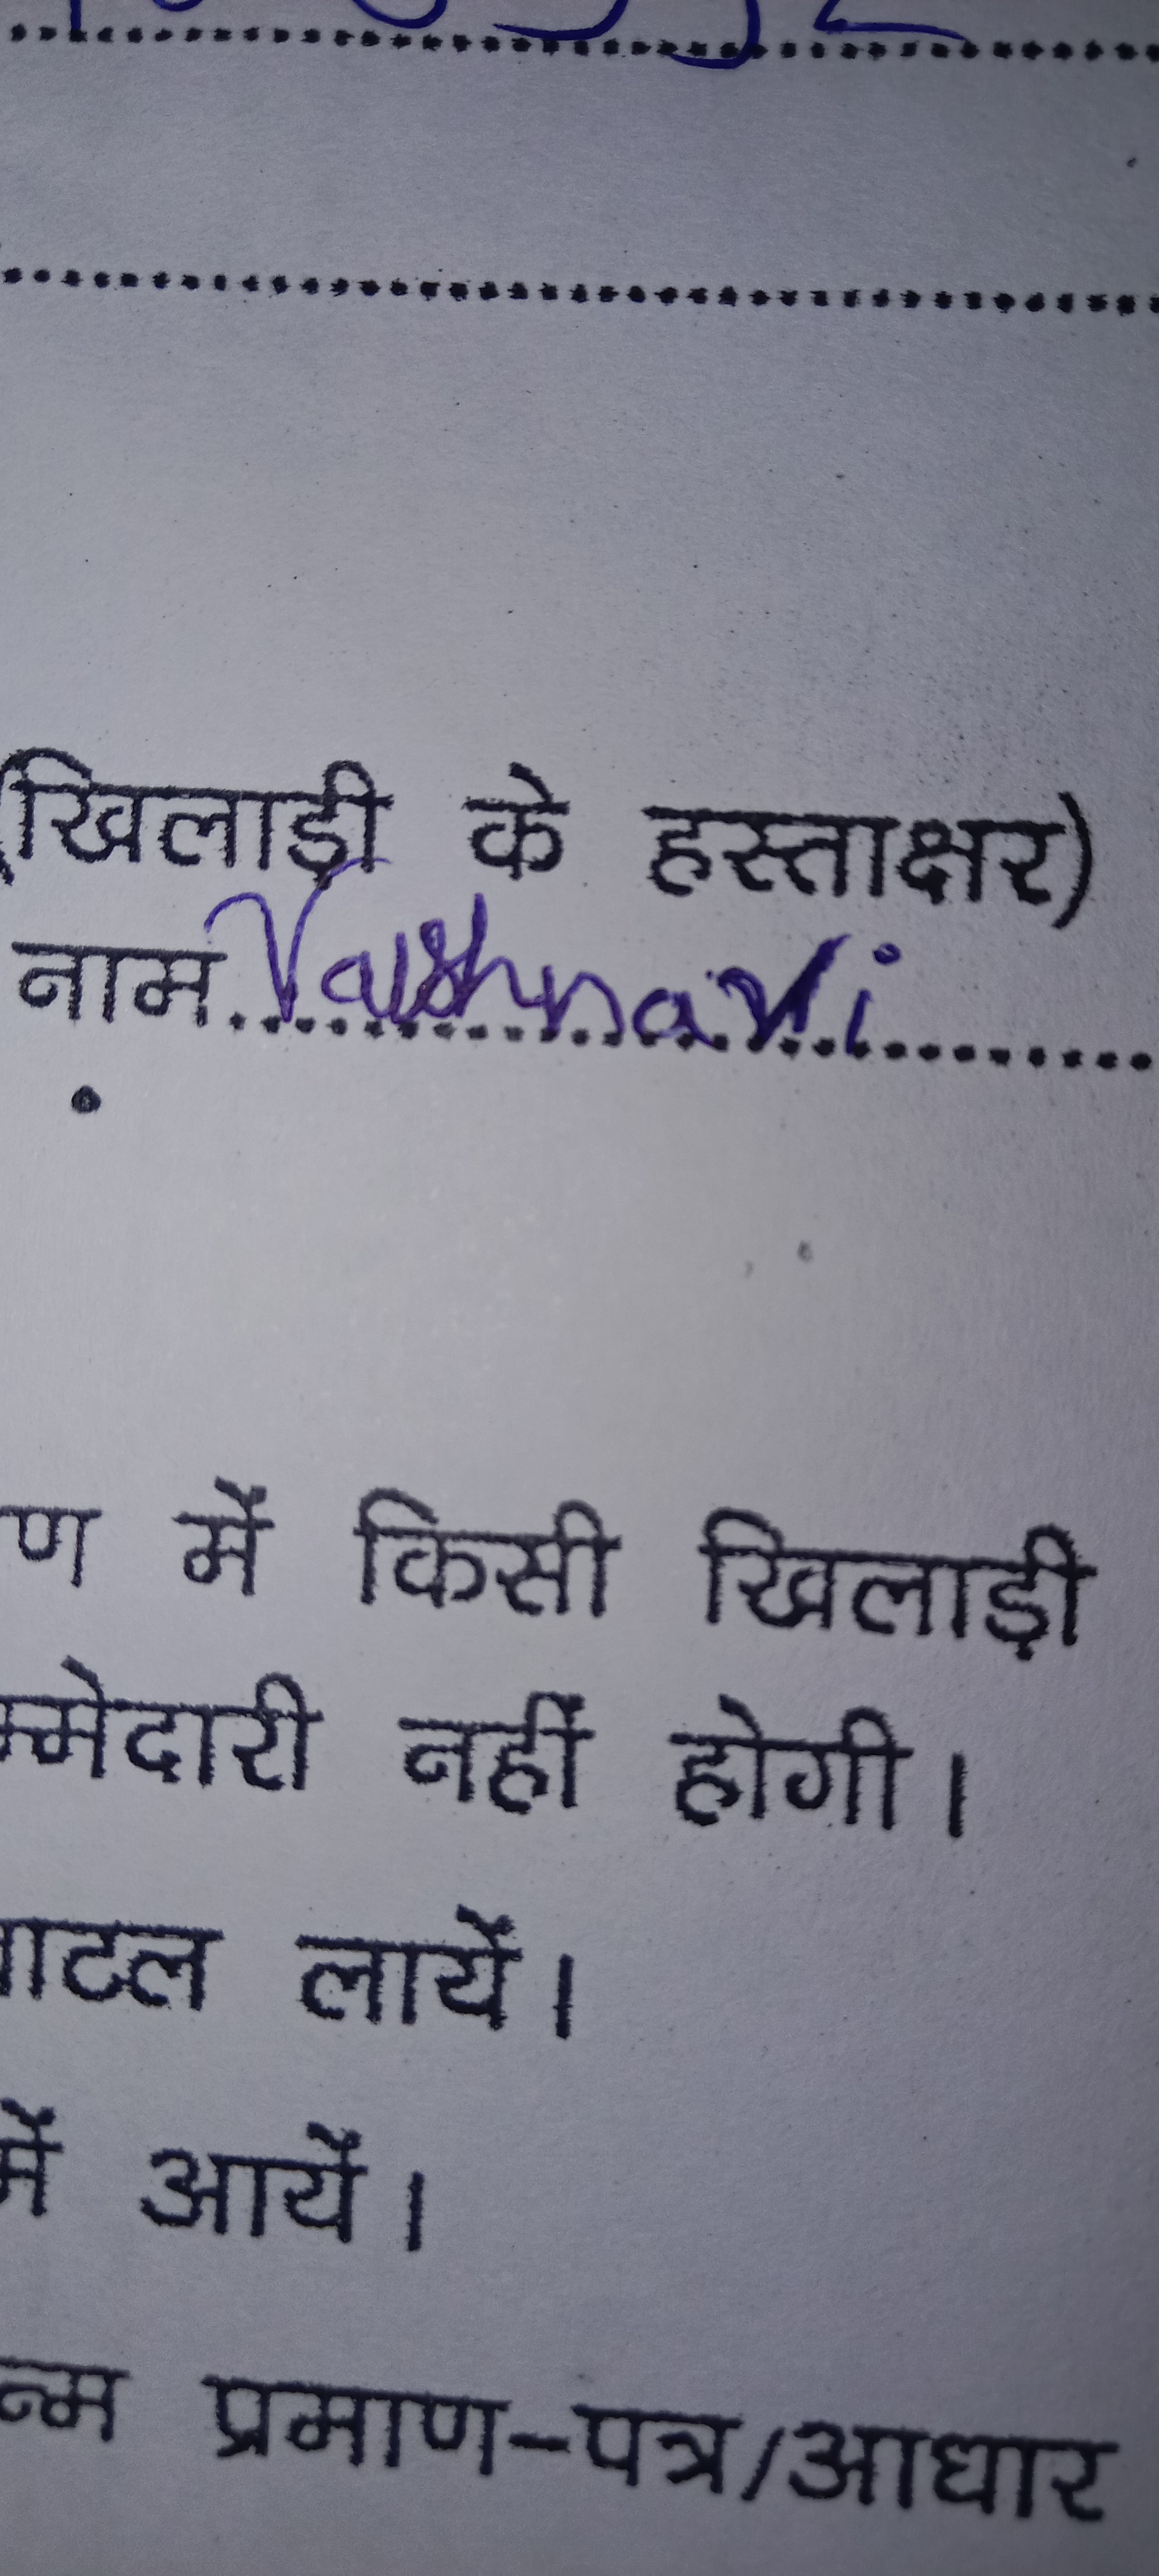 (खिलाड़ी के हस्ताक्षर)
नाम Vaishnavi
ण में किसी खिलाड़ी
म्मेदारी नहीं होगी।
लायें।
में आयें।
न्म प्रमाण-पत्र/आधार